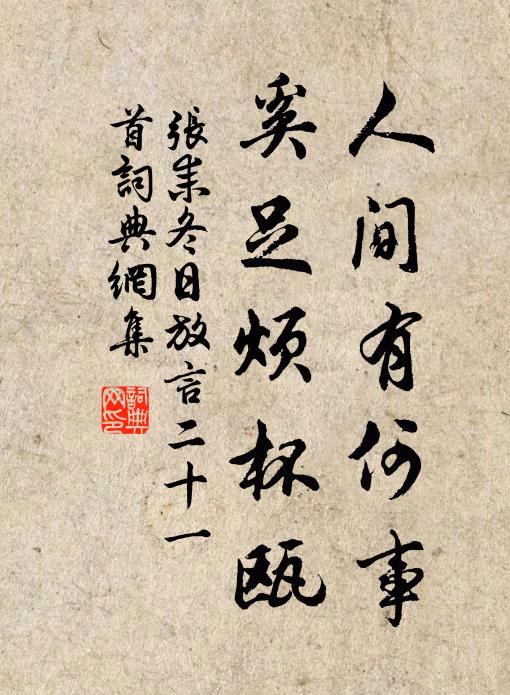 人间有何事
奚足烦杯瓯
張耒冬日放言二十一
首詞典網集
詞典网印